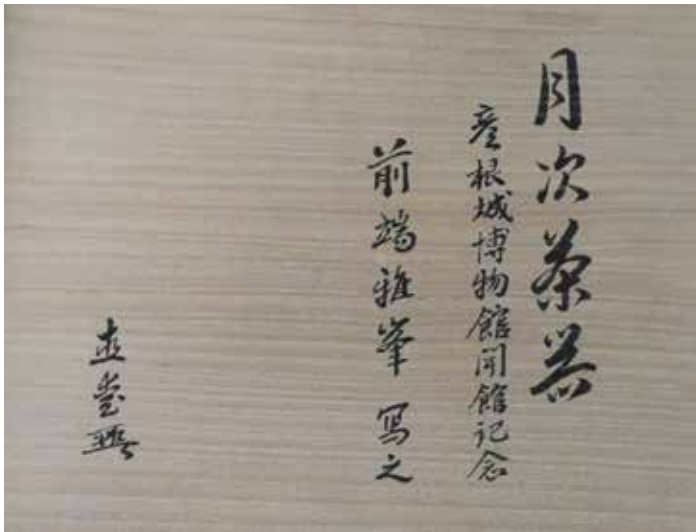 月次茶器
彦根城博物館開館記念
前端雅峯 写之